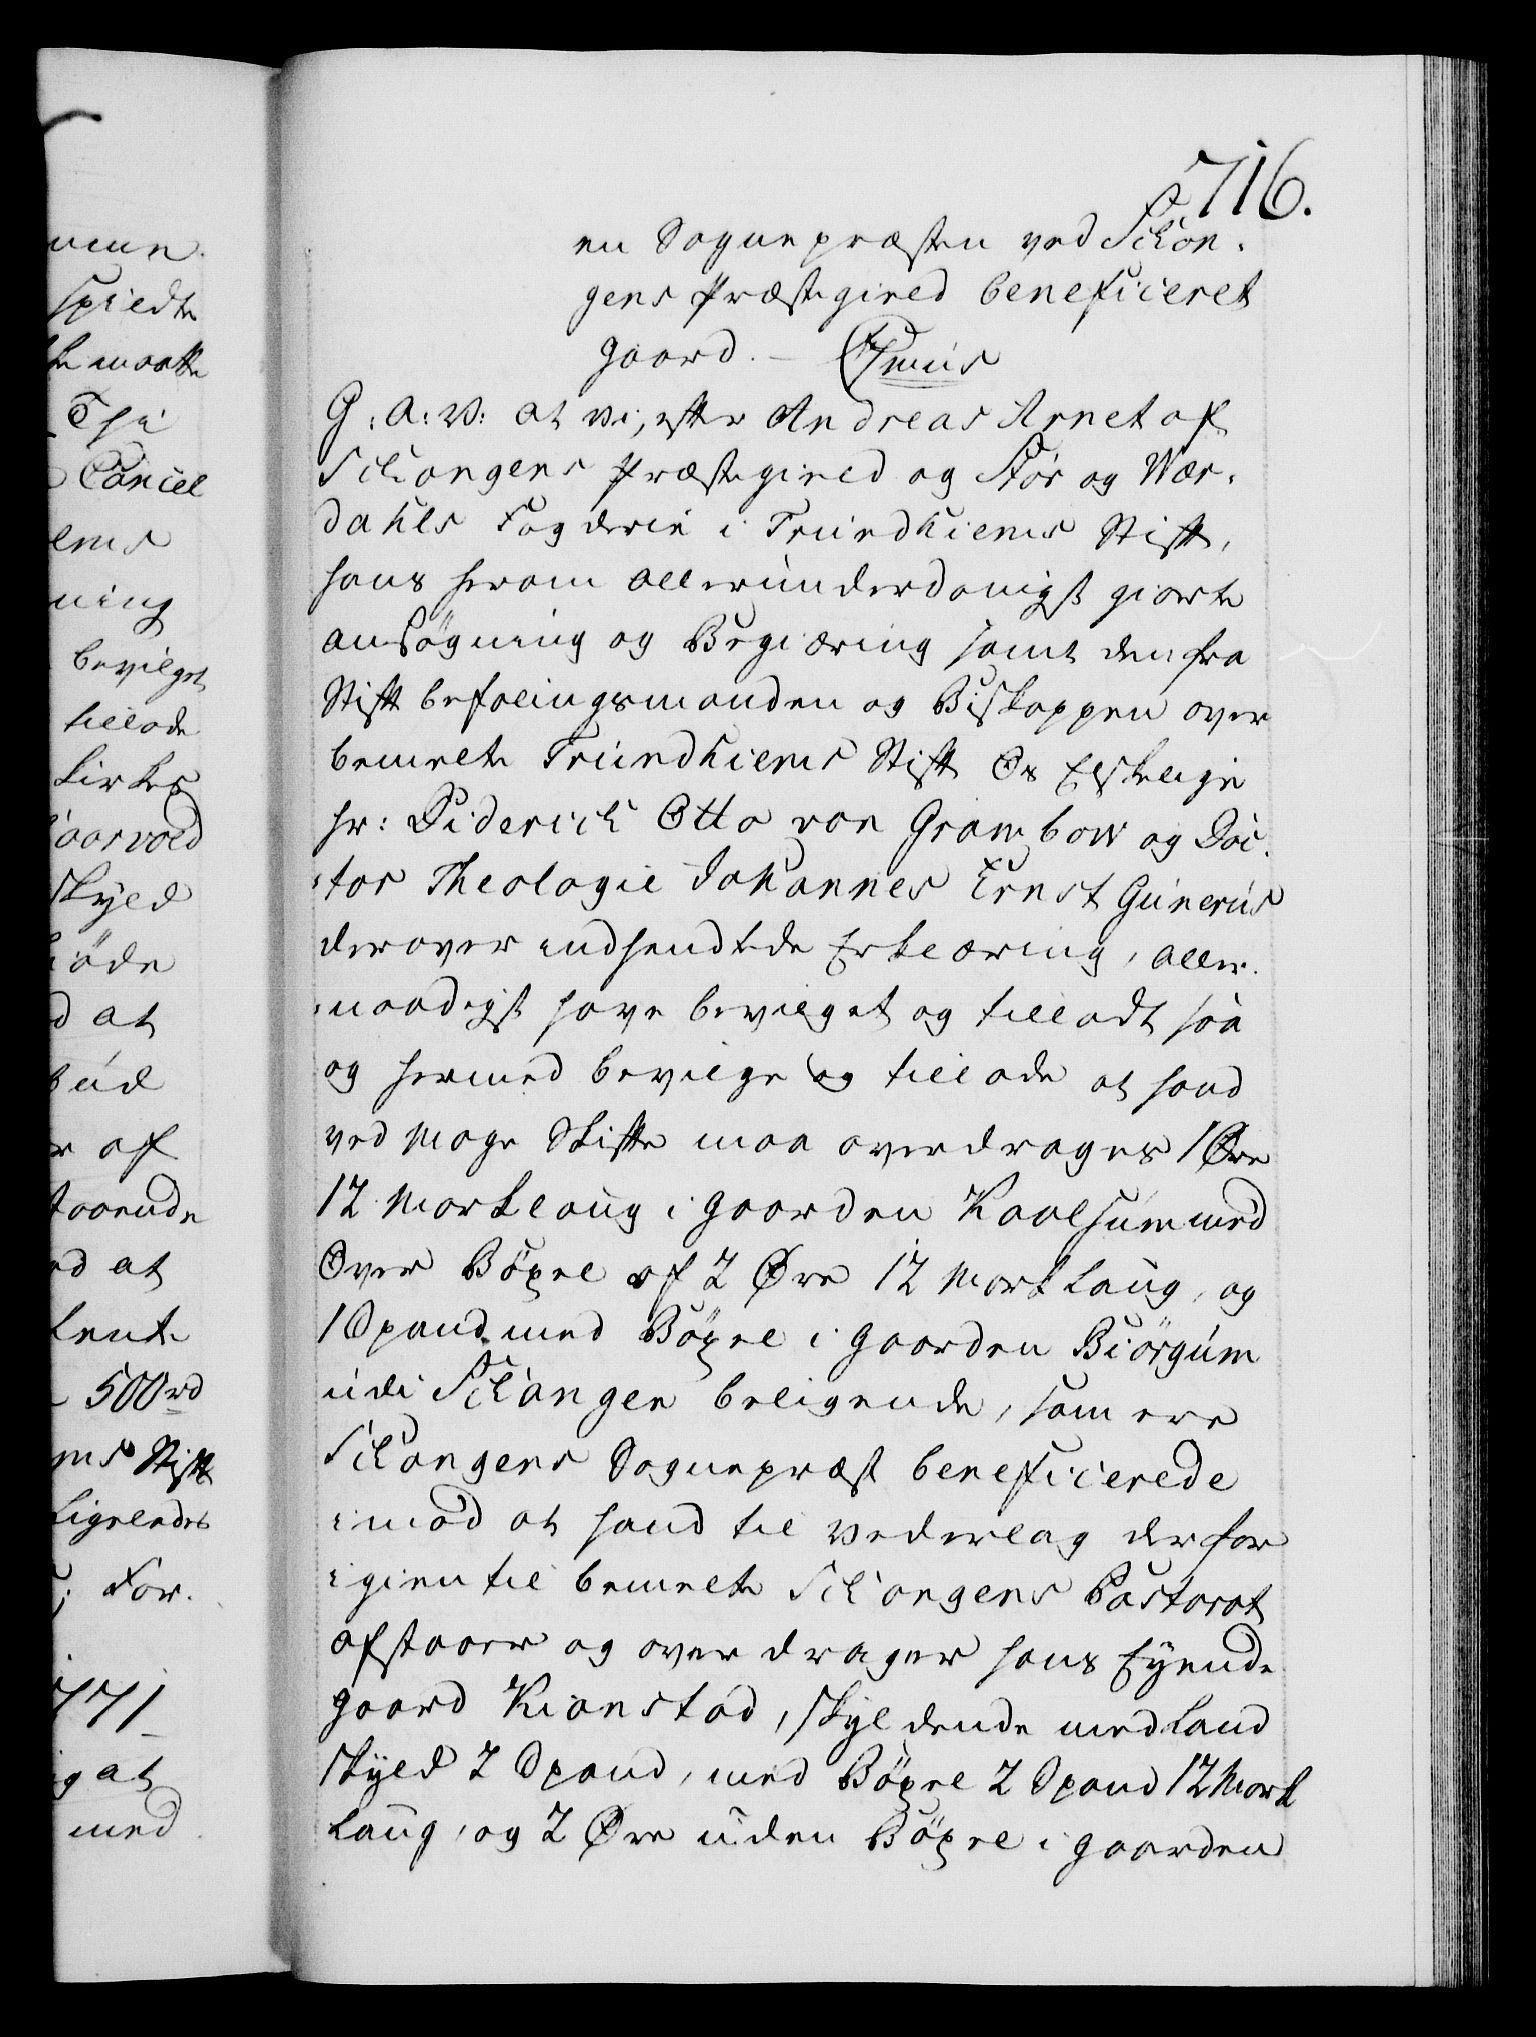 716.
en Sognepræsten ved Schon-
gens Præstegield beneficeret
gaard. —
G: A: V: at vi, efter Andreas Arnet af
Schongens Præstegield og Stör og Wær-
dahls Fogderie i Trundhiems Stift,
hans herom allerunderdanigst giorte
ansøgning og Begiæring samt den fra
Stiftbefalingsmanden og Biskoppen over
bemelte Trundhiems Stift Os Elskelige
Hr: Diderich Otto von Grambow og Doc-
tor Theologie Johannes Ernst Gunerus
derover indsendte Erklæring, aller-
naadigst have bevilget og tilladt saa
og hermed bevilge og tillade at hand
ved Mage Skifte maa overdrages 1 Øre
12 Marklaug i gaarden Kaalsum med
Over Böxel af 2 Øre 12 Marklaug, og
1 Spand med Böxel i gaarden Biörgum
udi Schongen beligende, som ere
Schongens Sognepræst beneficerede
imod at hand til Vederlag derfor
igien til bemelte Schongens Pastorat
afstaaer og overdrager hans Eyende
gaard Kionstad, skyldende med Land
skyld 2 Spand, med Böxel 2 Spand 12 Mark
laug, og 2 Øre uden Böxel i gaarden